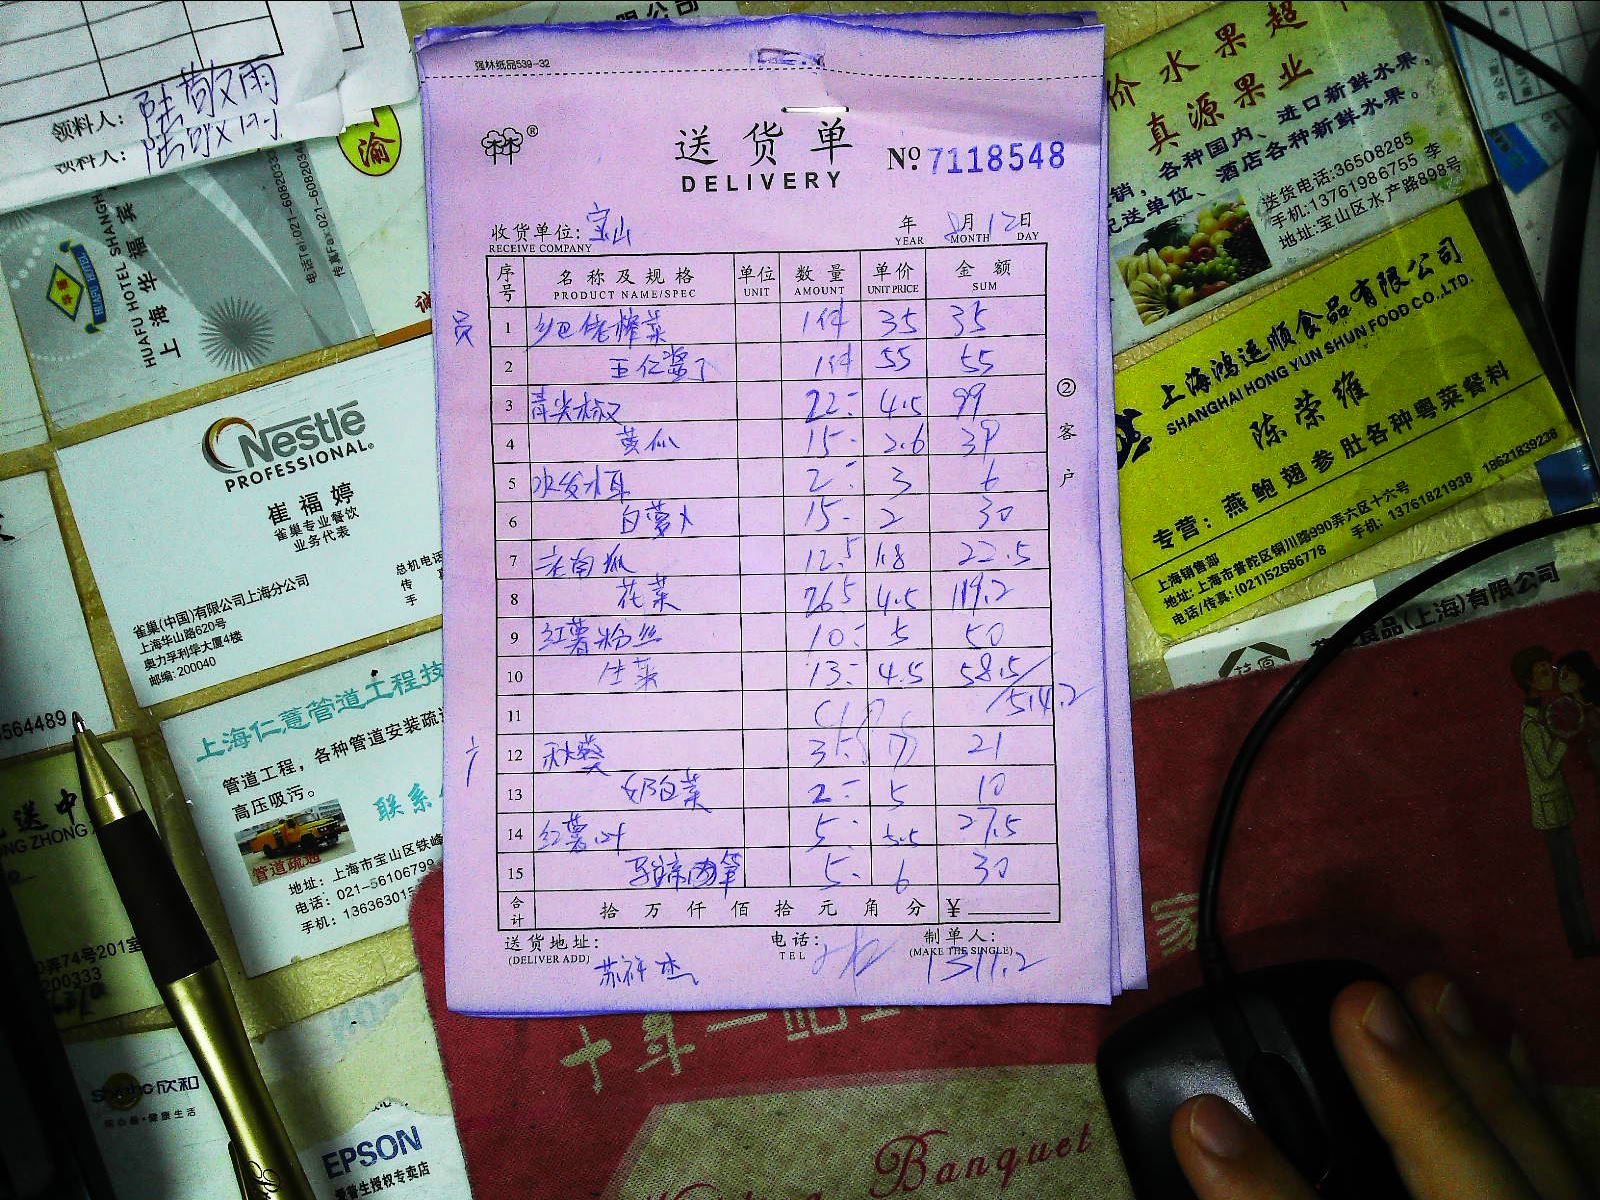 强林纸品539-32
送货单
DELIVERY
№ 7118548
收货单位: 宝山
RECEIVE COMPANY
年 8月12日
YEAR MONTH DAY
序号 名称及规格 单位 数量 单价 金额
PRODUCT NAME/SPEC UNIT AMOUNT UNIT PRICE SUM
员
1 乡巴佬榨菜 1件 35 35
2 1件 55 55
3 青尖椒 22 4.5 99
4 黄瓜 15 2.6 39
5 水发木耳 2 3 6
6 白萝卜 15 2 30
7 老南瓜 12.5 1.8 22.5
8 花菜 26.5 4.5 119.2
9 红薯粉丝 10 5 50
10 生菜 13 4.5 58.5
11 514.2
12 秋葵 3 7 21
13 奶白菜 2 5 10
14 红薯叶 5 5.5 27.5
15 5 6 30
合计 拾万仟佰拾元角分 ¥
②客户
送货地址:
(DELIVER ADD)
苏祥杰
电话:
TEL
制单人:
(MAKE THE SINGLE)
1311.2
领料人: 陆敬雨
领料人:
渝
HUAFU HOTEL SHANGH
上海华福宾
HUAFU HOTEL
诚
Nestlé
PROFESSIONAL
崔福婷
雀巢专业餐饮
业务代表
总机电话
传
手
雀巢(中国)有限公司上海分公司
上海华山路620号
奥力孚利华大厦4楼
邮编: 200040
564489
上海仁薏管道工程技
管道工程，各种管道安装疏
高压吸污。
联系
管道疏通
地址: 上海市宝山区铁峰
电话: 021-56106799
手机: 136363015
送中
NG ZHONG
弄74号201室
200333
欣和
健康生活
EPSON
爱普生授权专卖店
限公司
价水果超
真源果业
销，各种国内、进口新鲜水果，
配送单位、酒店各种新鲜水果。
送货电话:36508285
手机:13761986755 李
地址:宝山区水产路898号
上海鸿运顺食品有限公司
SHANGHAI HONG YUN SHUN FOOD CO.,LTD.
陈荣维
专营: 燕鲍翅参肚各种粤菜餐料
上海销售部
地址: 上海市普陀区铜川路990弄六区十六号
电话/传真: (021)52686778 手机: 13761821938 18621839238
食品(上海)有限公司
家
十年一
Banquet